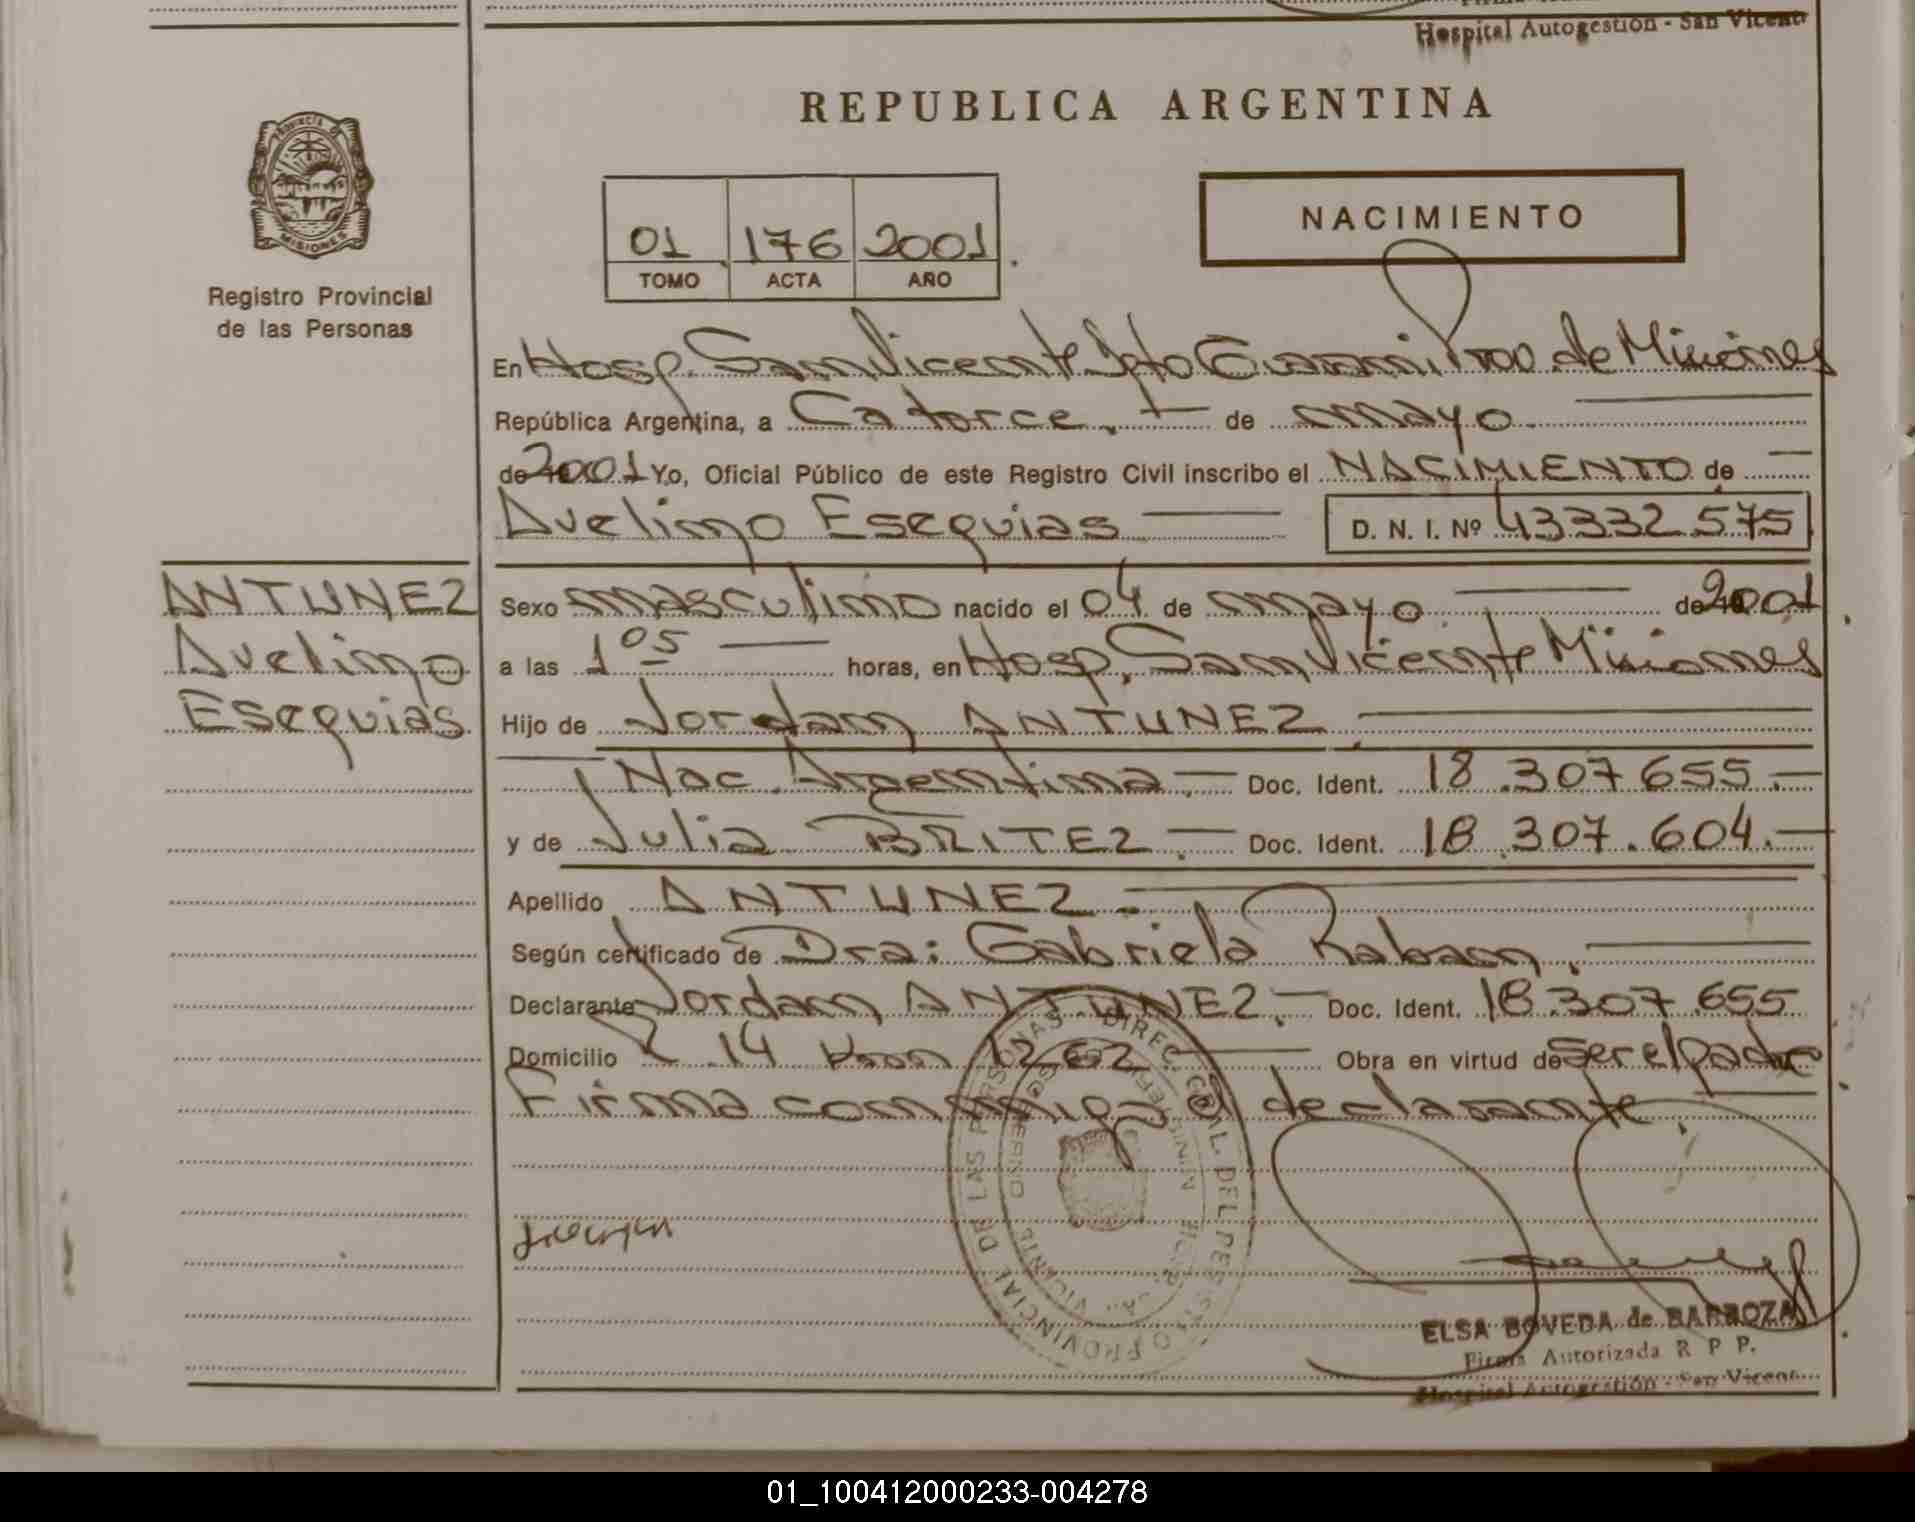 Hospital Autogestión - San Vicente
REPUBLICA ARGENTINA
PROVINCIA DE
MISIONES
Registro Provincial
de las Personas
01 176 2001
TOMO ACTA AÑO
NACIMIENTO
En Hosp. San Vicente Dpto Guaraní Prov. de Misiones
República Argentina, a Catorce. — de mayo —
de 2001 Yo, Oficial Público de este Registro Civil inscribo el NACIMIENTO de —
Avelino Esequias — D. N. I. Nº 43332575
ANTUNEZ
Avelino
Esequias
Sexo masculino nacido el 04 de mayo — de 2001
a las 1 05 — horas, en Hosp. San Vicente Misiones
Hijo de Jordan ANTUNEZ —
— Nac. Argentina. — Doc. Ident. 18.307.655.—
y de Julia BRITEZ. — Doc. Ident. 18.307.604.—
Apellido ANTUNEZ. —
Según certificado de Dra: Gabriela Raban. —
Declarante Jordan ANTUNEZ. — Doc. Ident. 18.307.655
Domicilio R 14 Km 1262 — Obra en virtud de Ser el padre
Firma conmigo el declarante.
DIREC. GRAL. DEL REGISTRO PROVINCIAL DE LAS PERSONAS
ELSA BOVEDA de BARBOZA
Firma Autorizada R P P.
Hospital Autogestión - San Vicente
01_100412000233-004278